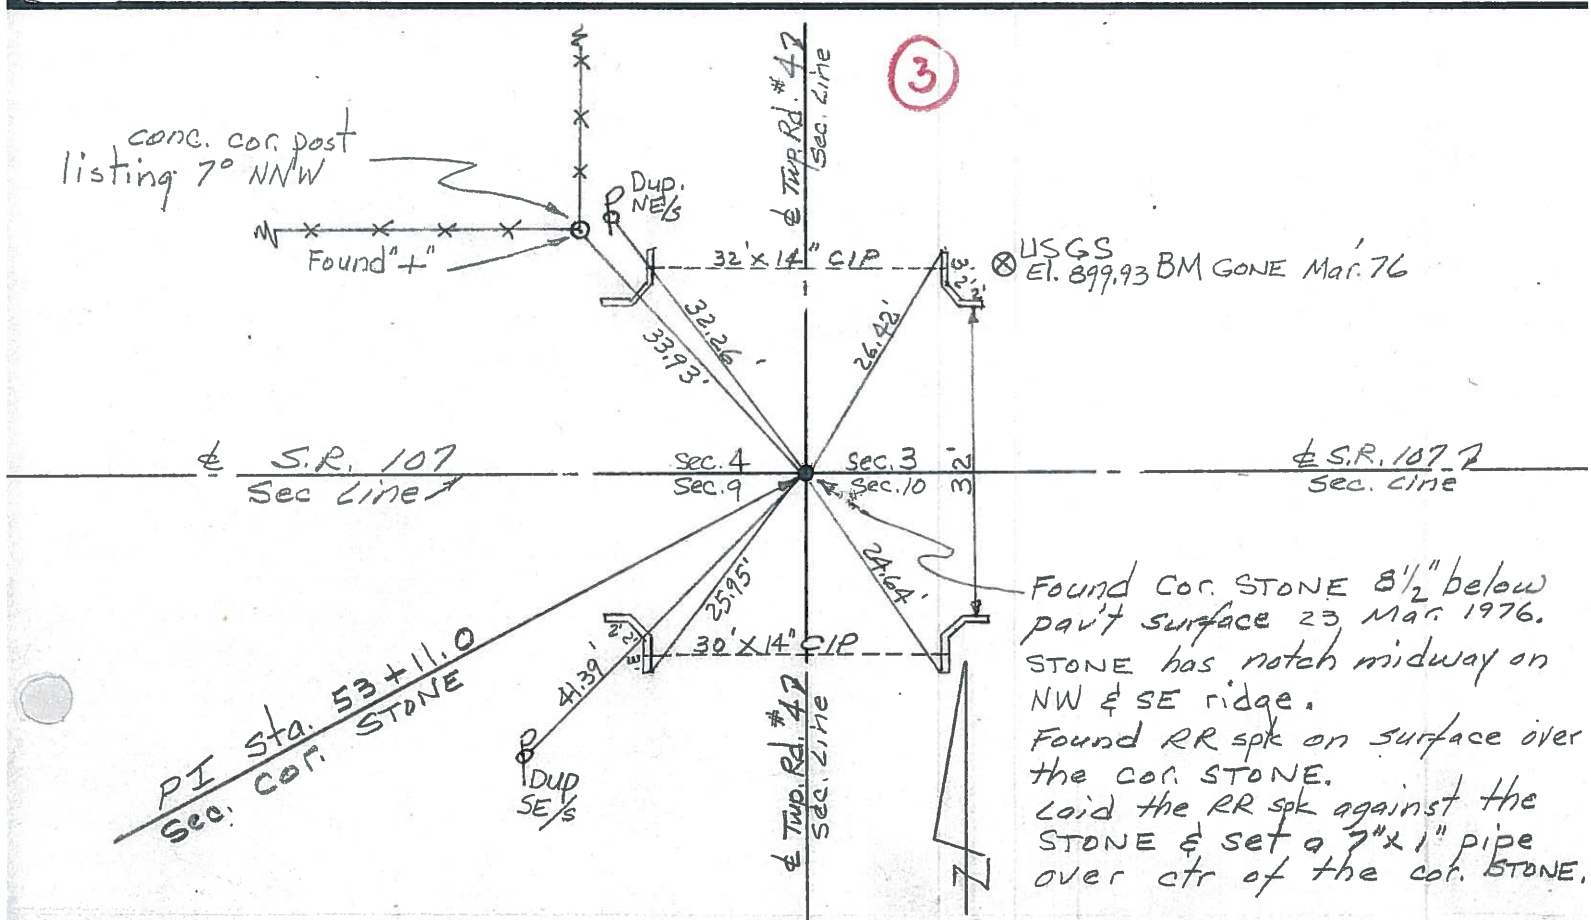 3
conc. cor. post
listing 7° NNW
Found "+"
Dup.
NE/s
℄ Twp. Rd. #47
Sec. Line
32' x 14" CIP
3'
2'
2'
USGS
El. 899.93 BM GONE Mar. '76
32.26'
33.93'
26.42'
℄ S.R. 107
Sec Line
Sec. 4
Sec. 9
Sec. 3
Sec. 10
32'
℄ S.R. 107
Sec. Line
25.95'
24.64'
41.39'
PI Sta. 53+11.0
Sec. Cor. STONE
2'
2'
3'
30' x 14" CIP
Dup
SE/s
℄ Twp. Rd. #47
Sec. Line
Found Cor. STONE 8½" below
pav't surface 23 Mar. 1976.
STONE has notch midway on
NW & SE ridge.
Found RR spk on surface over
the cor. STONE.
Laid the RR spk against the
STONE & set a 7"x1" pipe
over ctr of the cor. STONE.